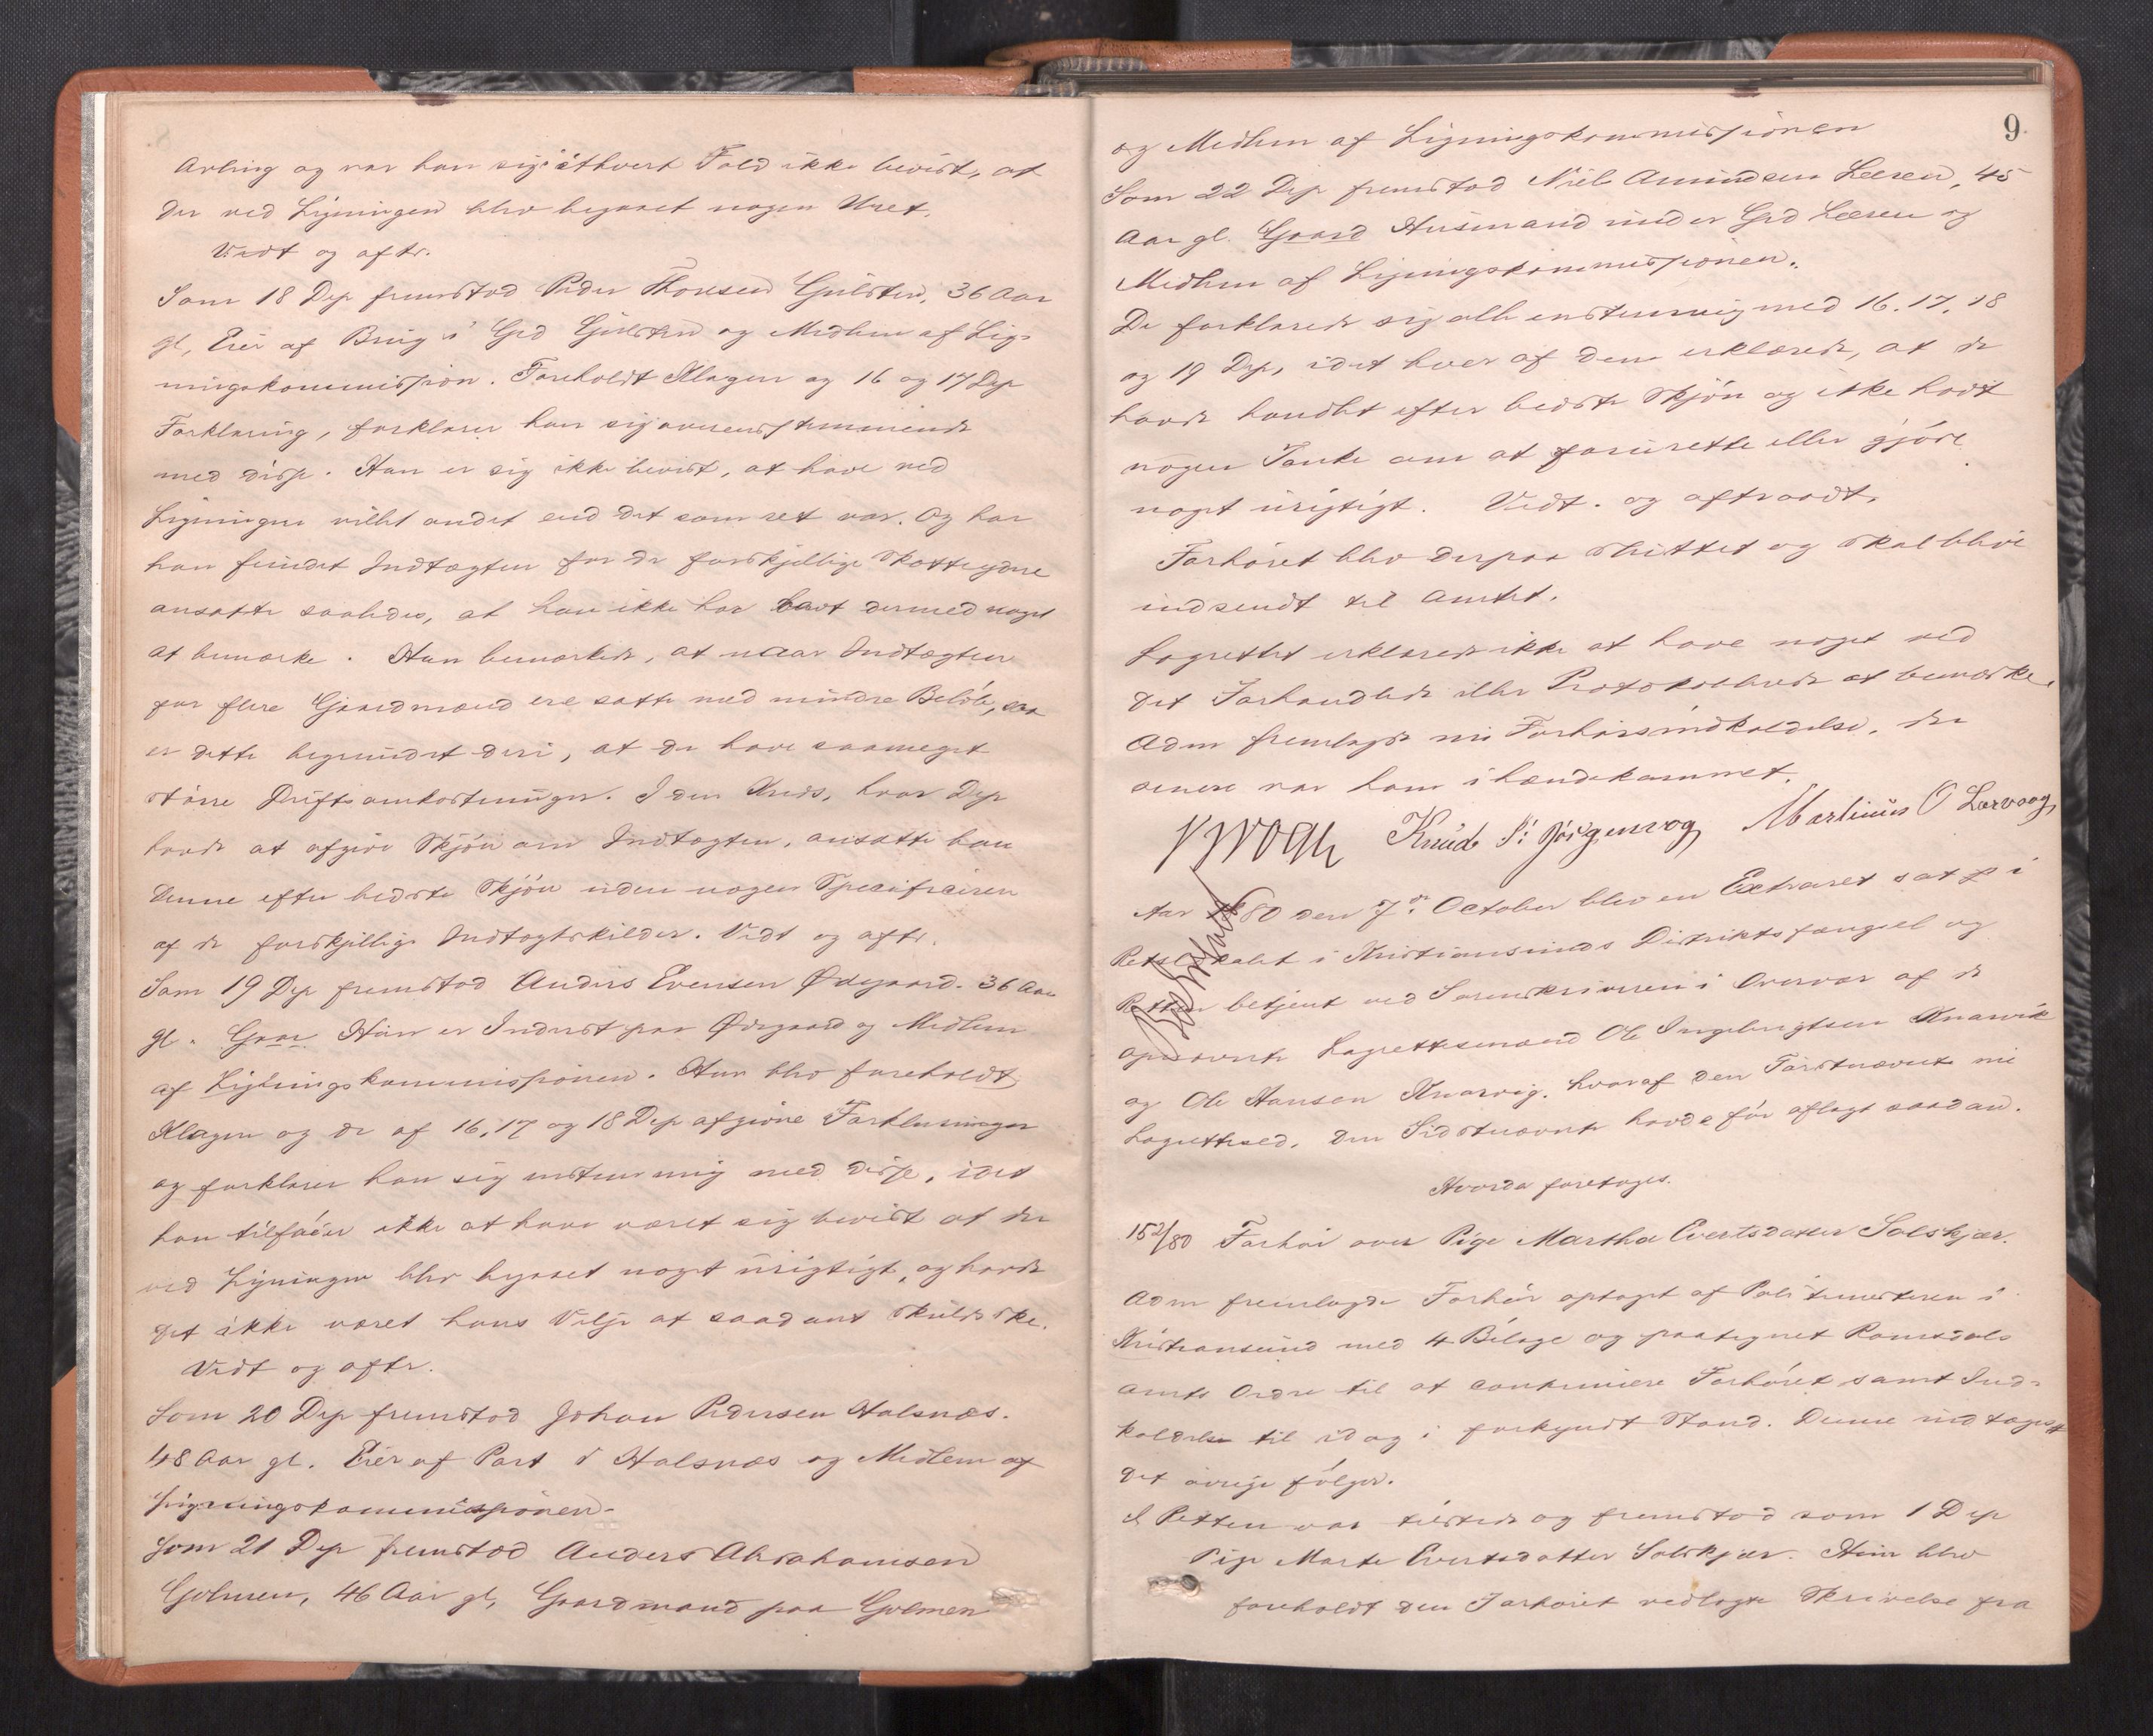 Avling og var han sig i ethvert Fald ikke bevist, at
der ved Ligningen blev begaaet nogen Uret.
Vedt og aftr.
Som 18 Dep fremstod Peder Thoresen Gulsten, 36 Aar
gl, Eier af Brug i Grd Gulsten og Medlem af Lig-
ningskommission. Foreholdt Klagen og 16 og 17 Dep
Forklaring, forklarer han sig overensstemmende
med disse. Han er sig ikke bevist, at have ved
Ligningen villet andet end det som ret var. Og har
han fundet Indtægten for de forskjellige Skatteydere
ansatte saaledes, at han ikke har havt dermed noget
at bemærke. Han bemærkede, at naar Indtægten
for flere Gaardmænd ere satte med mindre Beløb, saa
er dette begrundet deri, at de have saameget
større Driftsomkostninger. I den Kreds, hvor Dep
havde at afgive Skjøn om Indtægten, ansatte han
denne efter bedste Skjøn uden nogen Specificeren
af de forskjellige Indtægtskilder. Vedt og aftr.
Som 19 Dep fremstod Anders Evensen Ødegaard. 36 Aar
gl. Gaar Han er Inderst paa Ødegaard og Medlem
af Ligningskommissionen. Han blev foreholdt
Klagen og de af 16, 17 og 18 Dep afgivne Forklaringer
og forklarer han sig enstemmig med disse, idet
han tilføier ikke at have været sig bevist at der
ved Ligningen blev begaaet noget urigtigt, og havde
det ikke været hans Vilje at saadant skulde ske.
Vedt og aftr.
Som 20 Dep fremstod Johan Pedersen Halsnæs.
48 Aar gl. Eier af Part i Halsnæs og Medlem af
Ligningskommissionen.
Som 21 Dep fremstod Anders Abrahamsen
Golmen, 46 Aar gl, Gaardmand paa Golmen
9
og Medlem af Ligningskommissionen
Som 22 Dep fremstod Niels Amundsen Leeren, 45
Aar gl. Gaard Husmand under Grd Leeren og
Medlem af Ligningskommissionen.
De forklarede sig alle enstemmig med 16. 17. 18
og 19 Dep, idet hver af dem erklærede, at de
havde handlet efter bedste Skjøn og ikke havt
nogen Tanke om at forurette eller gjøre
noget urigtigt. Vedt. og aftraadt.
Forhøret blev derpaa sluttet og skal blive
indsendt til Amtet.
Lagrettet erklærede ikke at have noget ved
det Forhandlede eller Protokollerede at bemærke.
Adm fremlagde nu Forhørsindkaldelse, der
senere var ham i hænde kommet.
Knud P. Jørgenvog Martinus O Larvaag
Aar 1880 den 7de October blev en Extraret sat i
Retslokalet i Kristiansunds Distriktsfængsel og
Retten betjent ved Sorenskriveren i Overvær af de
opnævnte Lagrettesmænd Ole Ingebrigtsen Knarvik
og Ole Hansen Knarvig, hvoraf den Førstnævnte nu
Lagretteed, den Sidstnævnte havde før aflagt saadan.
Hvorda foretoges.
152/80 Forhør over Pige Martha Evertsdatter Solskjær.
Adm fremlagde Forhør optaget af Politimesteren i
Kristiansund med 4 Bilage og paategnet Romsdals
Amts Ordre til at continuere Forhøret samt Ind-
kaldelse til idag i forkyndt Stand. Denne indtages
det øvrige følger.
I Retten var tilstede og fremstod som 1 Dep
Pige Marte Evertsdatter Solskjær. Hun blev
foreholdt den Forhøret vedlagte Skrivelse fra